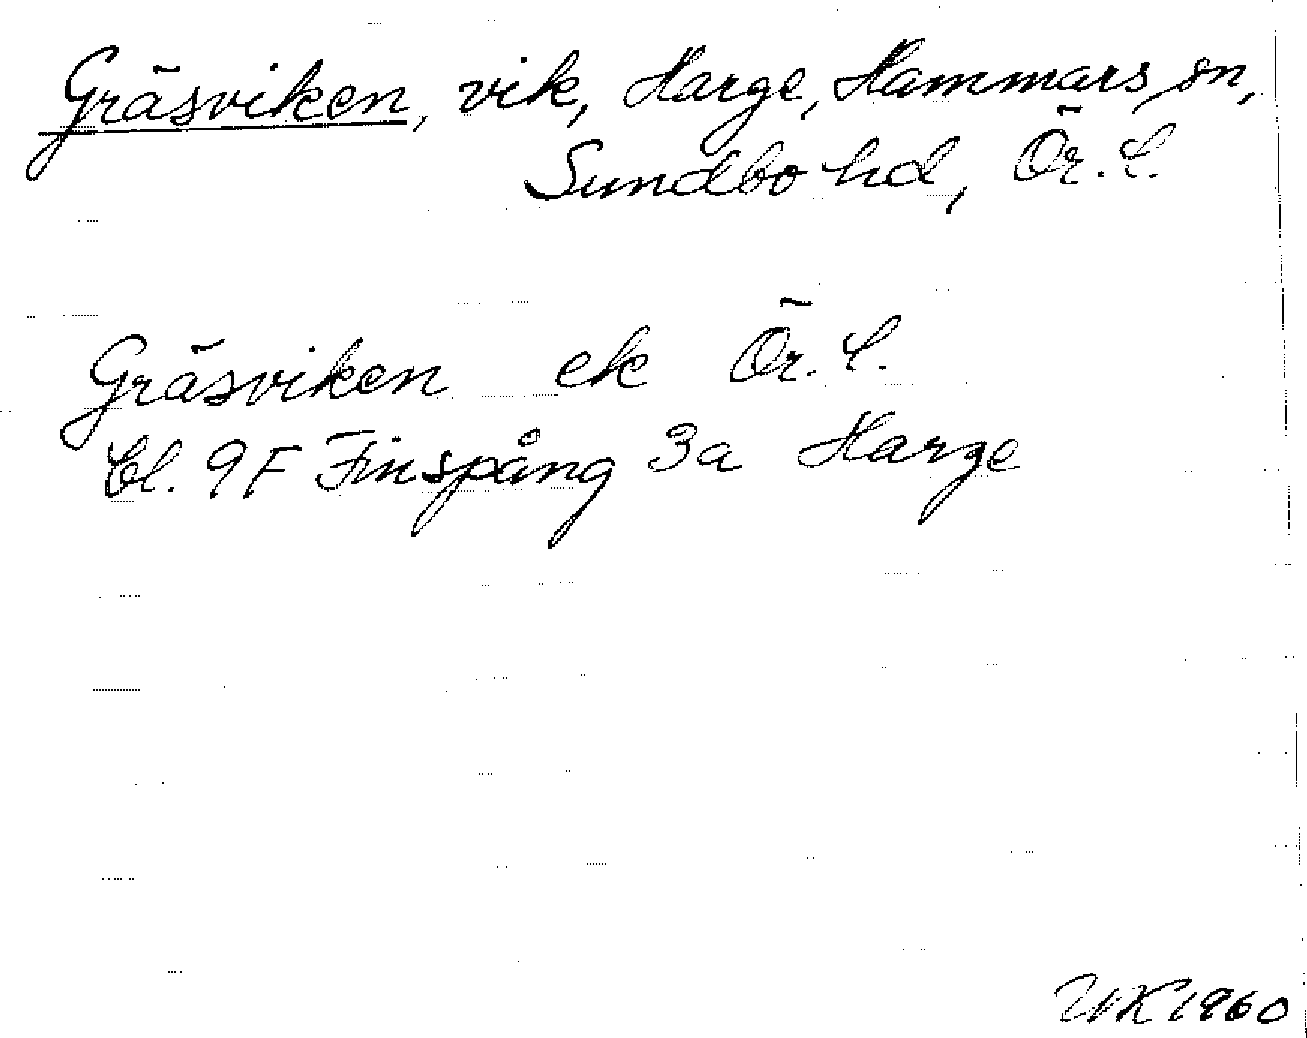 Gräsviken, vik, Harge, Hammars sn,
Sundbo hd, Ör. l.
Gräsviken ek Ör. l.
bl. 9F Finspång 3a Harge
1960